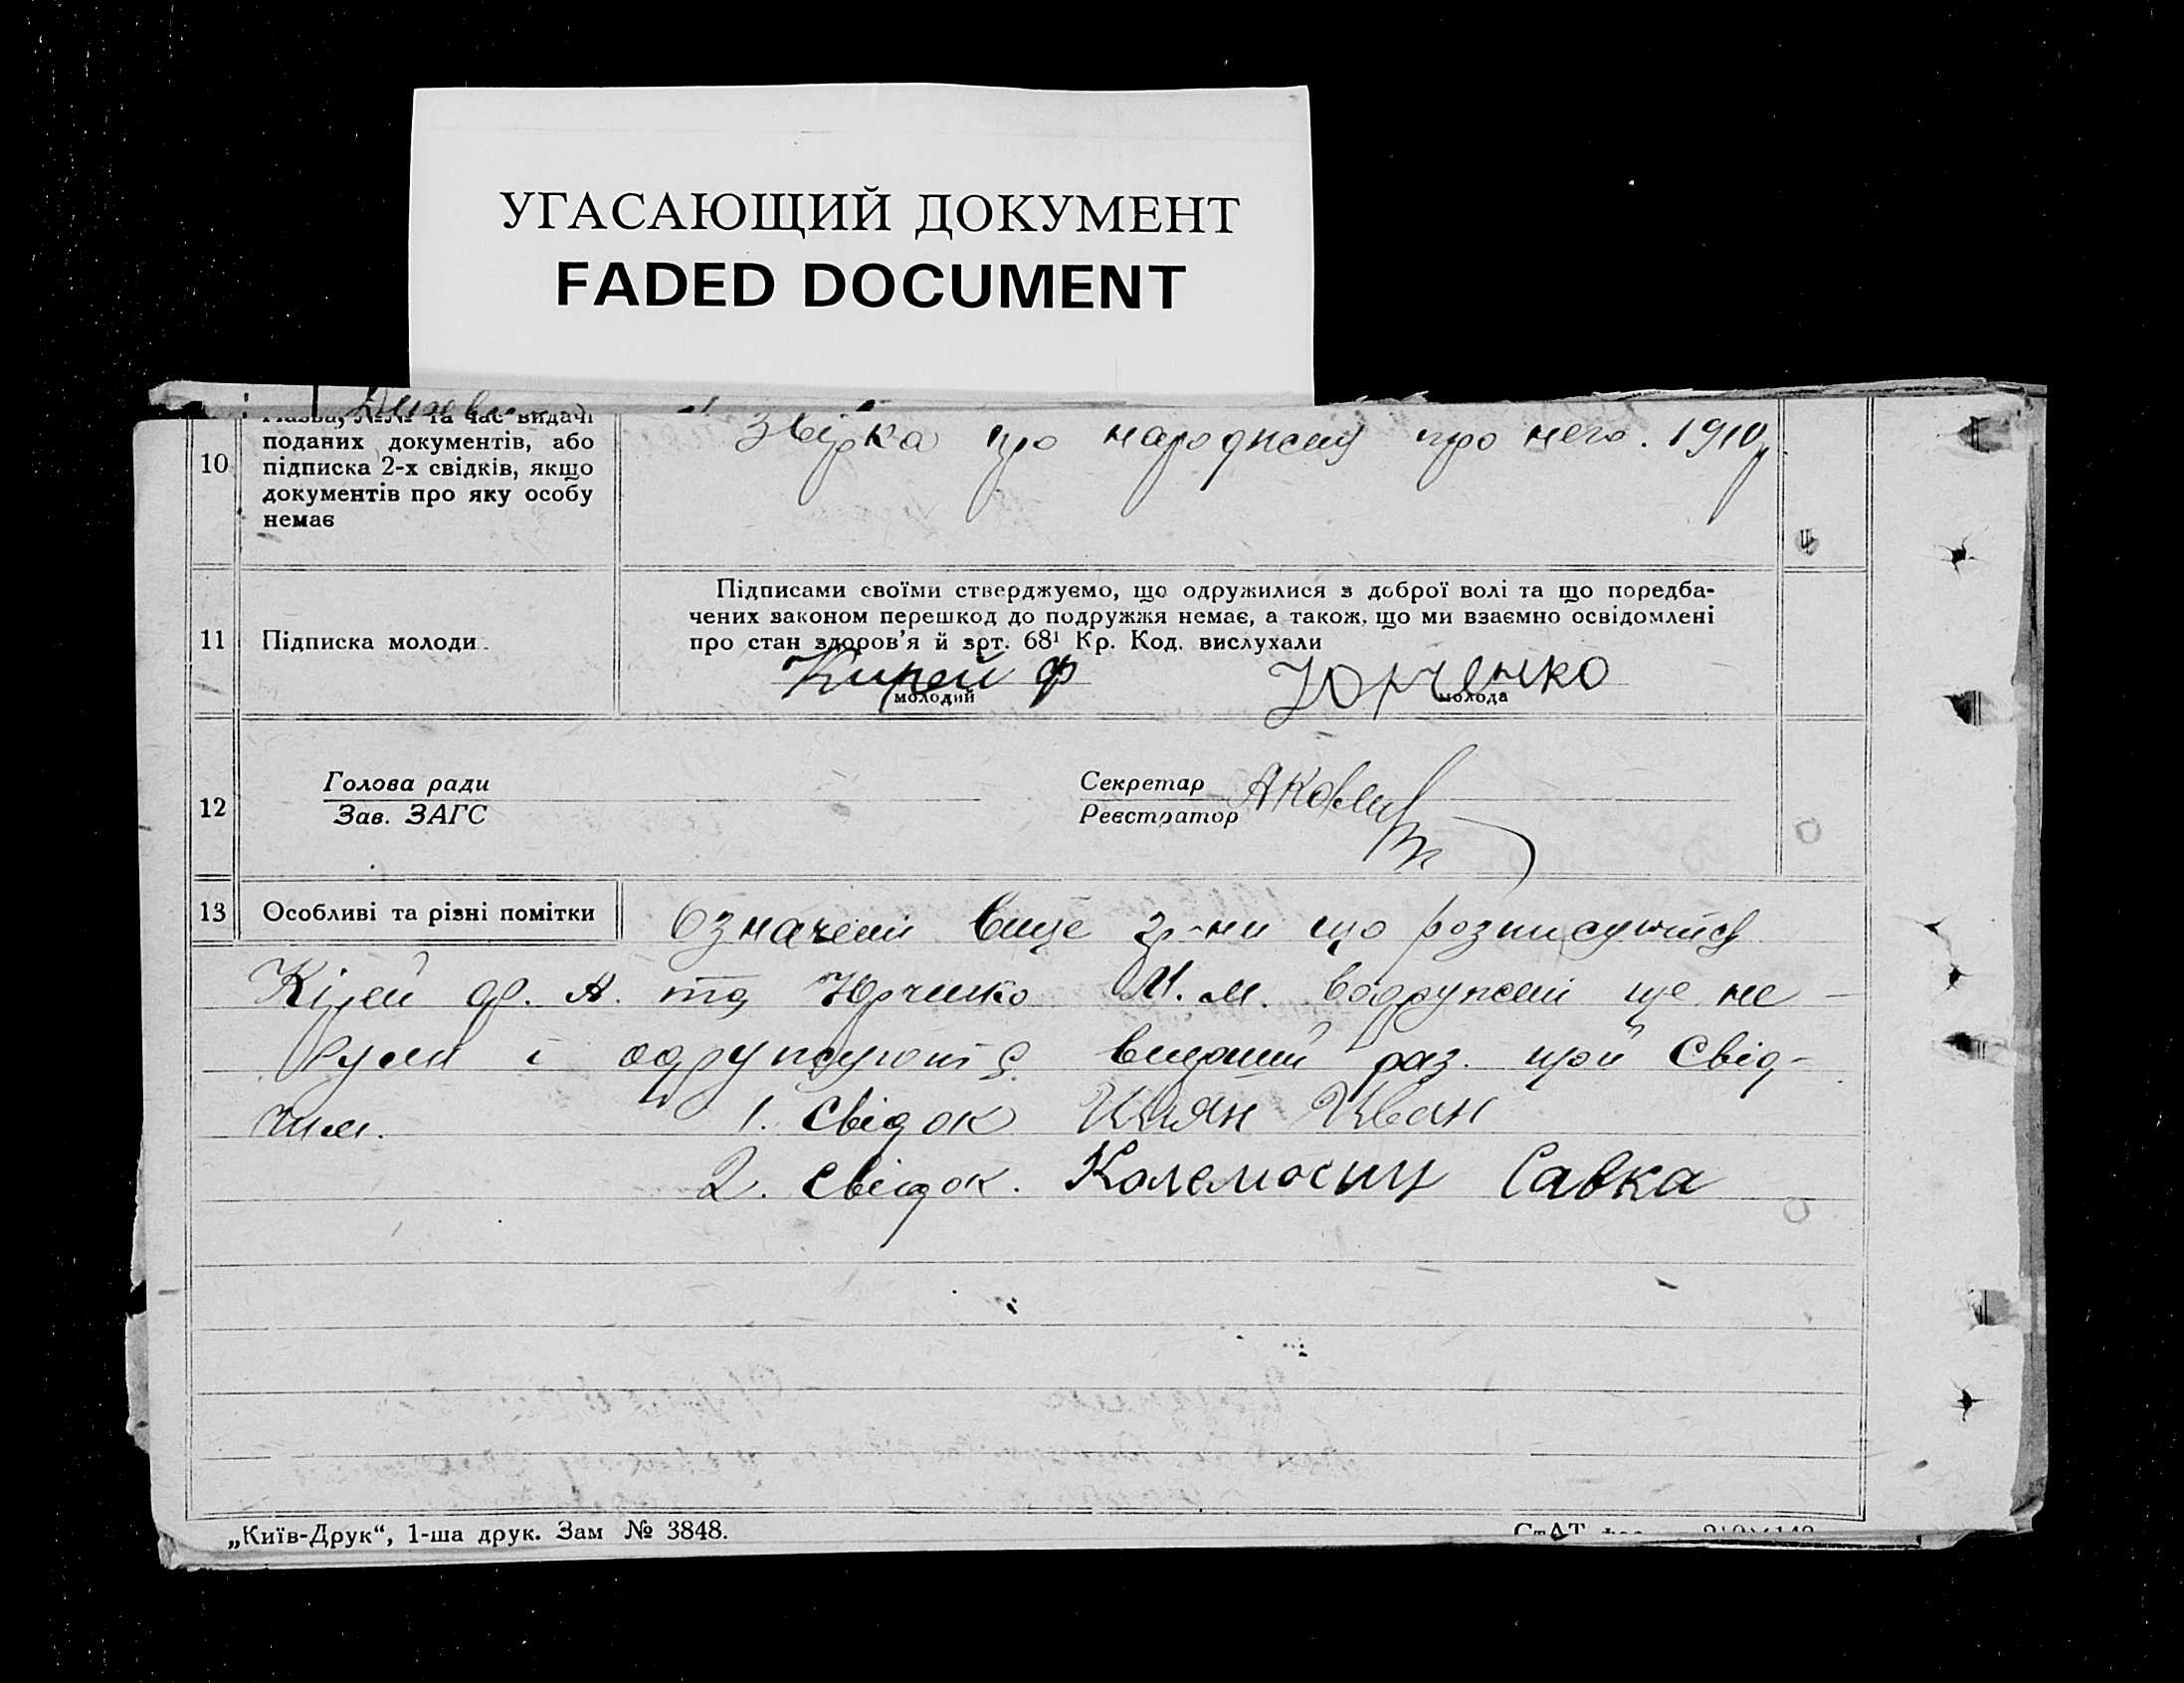 УГАСАЮЩИЙ ДОКУМЕНТ
FADED DOCUMENT
10
Назва, №№ та час видачі
поданих документів, або
підписка 2-х свідків, якщо
документів про яку особу
немає
Звірка про народження про него. 1910р.
11
Підписка молоди
Підписами своїми стверджуємо, що одружилися з доброї волі та що поредба-
чених законом перешкод до подружжя немає, а також, що ми взаємно освідомлені
про стан здоров'я й зрт. 68¹ Кр. Код. вислухали
Кирей Ф Юрченко
молодий молода
12
Голова ради
Зав. ЗАГС
Секретар
Реєстратор
13
Особливі та різні помітки
Означені вище гр-ни що розписуються
Кірей Ф. А. та Юрченко М. М. водружені ще не
були і одружуються перший раз. при свід-
чим. 1. Свідок Киян Иван
2. Свідок. Савка
„Київ-Друк“, 1-ша друк. Зам № 3848.